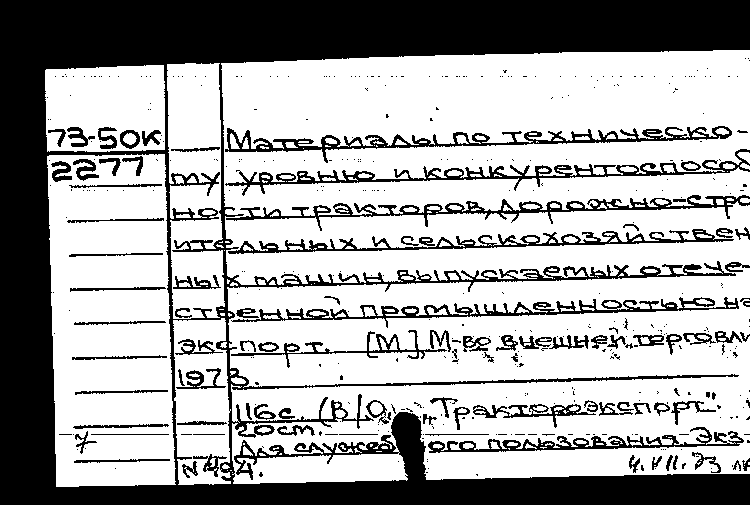 73-50К
2277
Материалы по техническо-
му уровню и конкурентоспособ
ности тракторов, дорожно-стро
ительных и сельскохозяйствен
ных машин, выпускаемых отече-
ственной промышленностью на
экспорт. [М.], М-во внешней торговли
1973.
116с. (В/О „Трактороэкспорт".
20см.
Для служеб ого пользования. Экз.
N 494.
4.VII.73
7